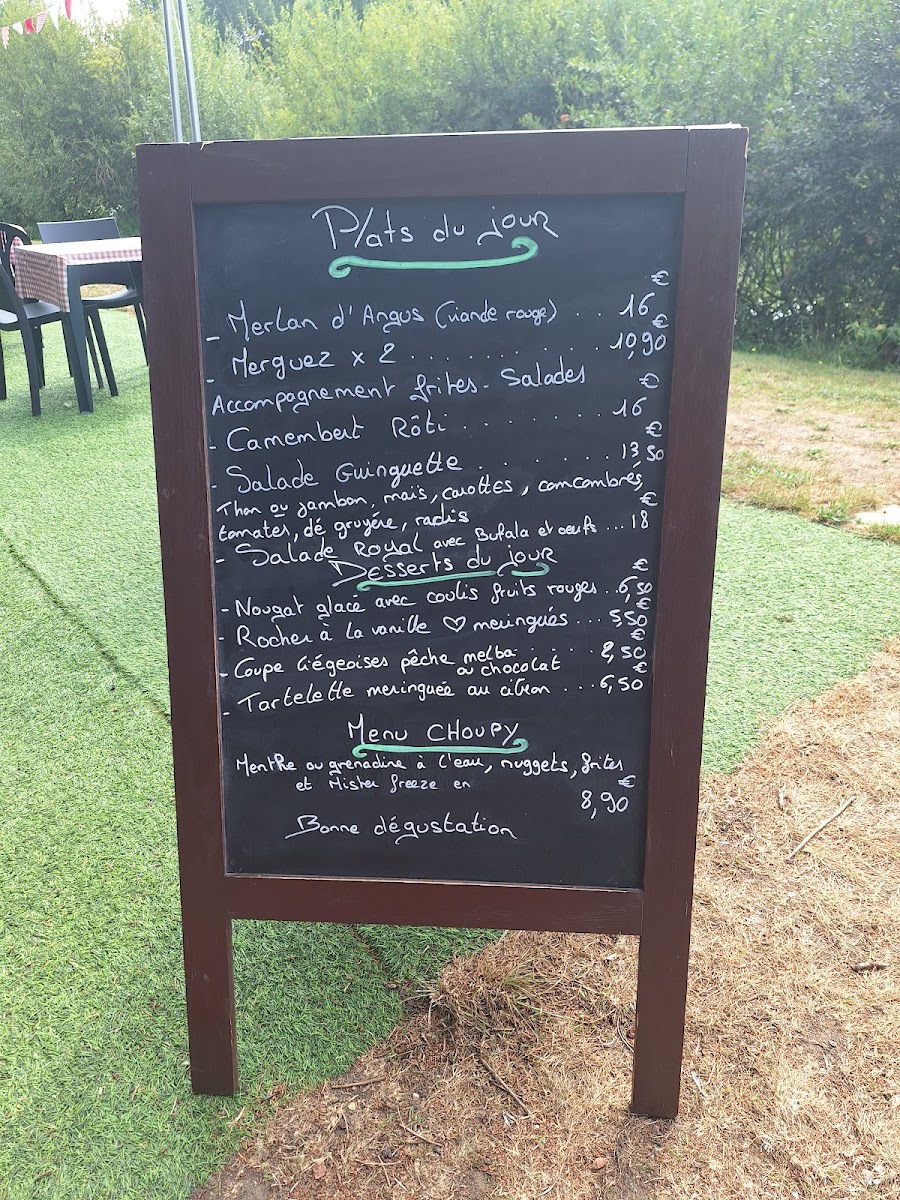 Plats du jour
- Merlan d'Angus (viande rouge) . . 16 €
- Merguez x 2 . . . . . . . . . . 10,90 €
Accompagnement frites - Salades
- Camembert Rôti . . . . . . . . 16 €
- Salade Guinguette . . . . . . . . 13,50 €
Thon ou jambon, maïs, carottes, comcombres,
tomates, dé gruyére, radis
- Salade Royal avec Bufala et oeufs ... 18 €
Desserts du jour
- Nougat glacé avec coulis fruits rouges .. 6,50 €
- Rocher à la vanille ♡ meringués ... 5,50 €
- Coupe liégeoises pêche melba . . . . . 8,50 €
ou chocolat
- Tartelette meringuée au citron .... 6,50 €
Menu CHOUPY
Menthe ou grenadine à l'eau, nuggets, frites
et Mister freeze en
8,90 €
Bonne dégustation